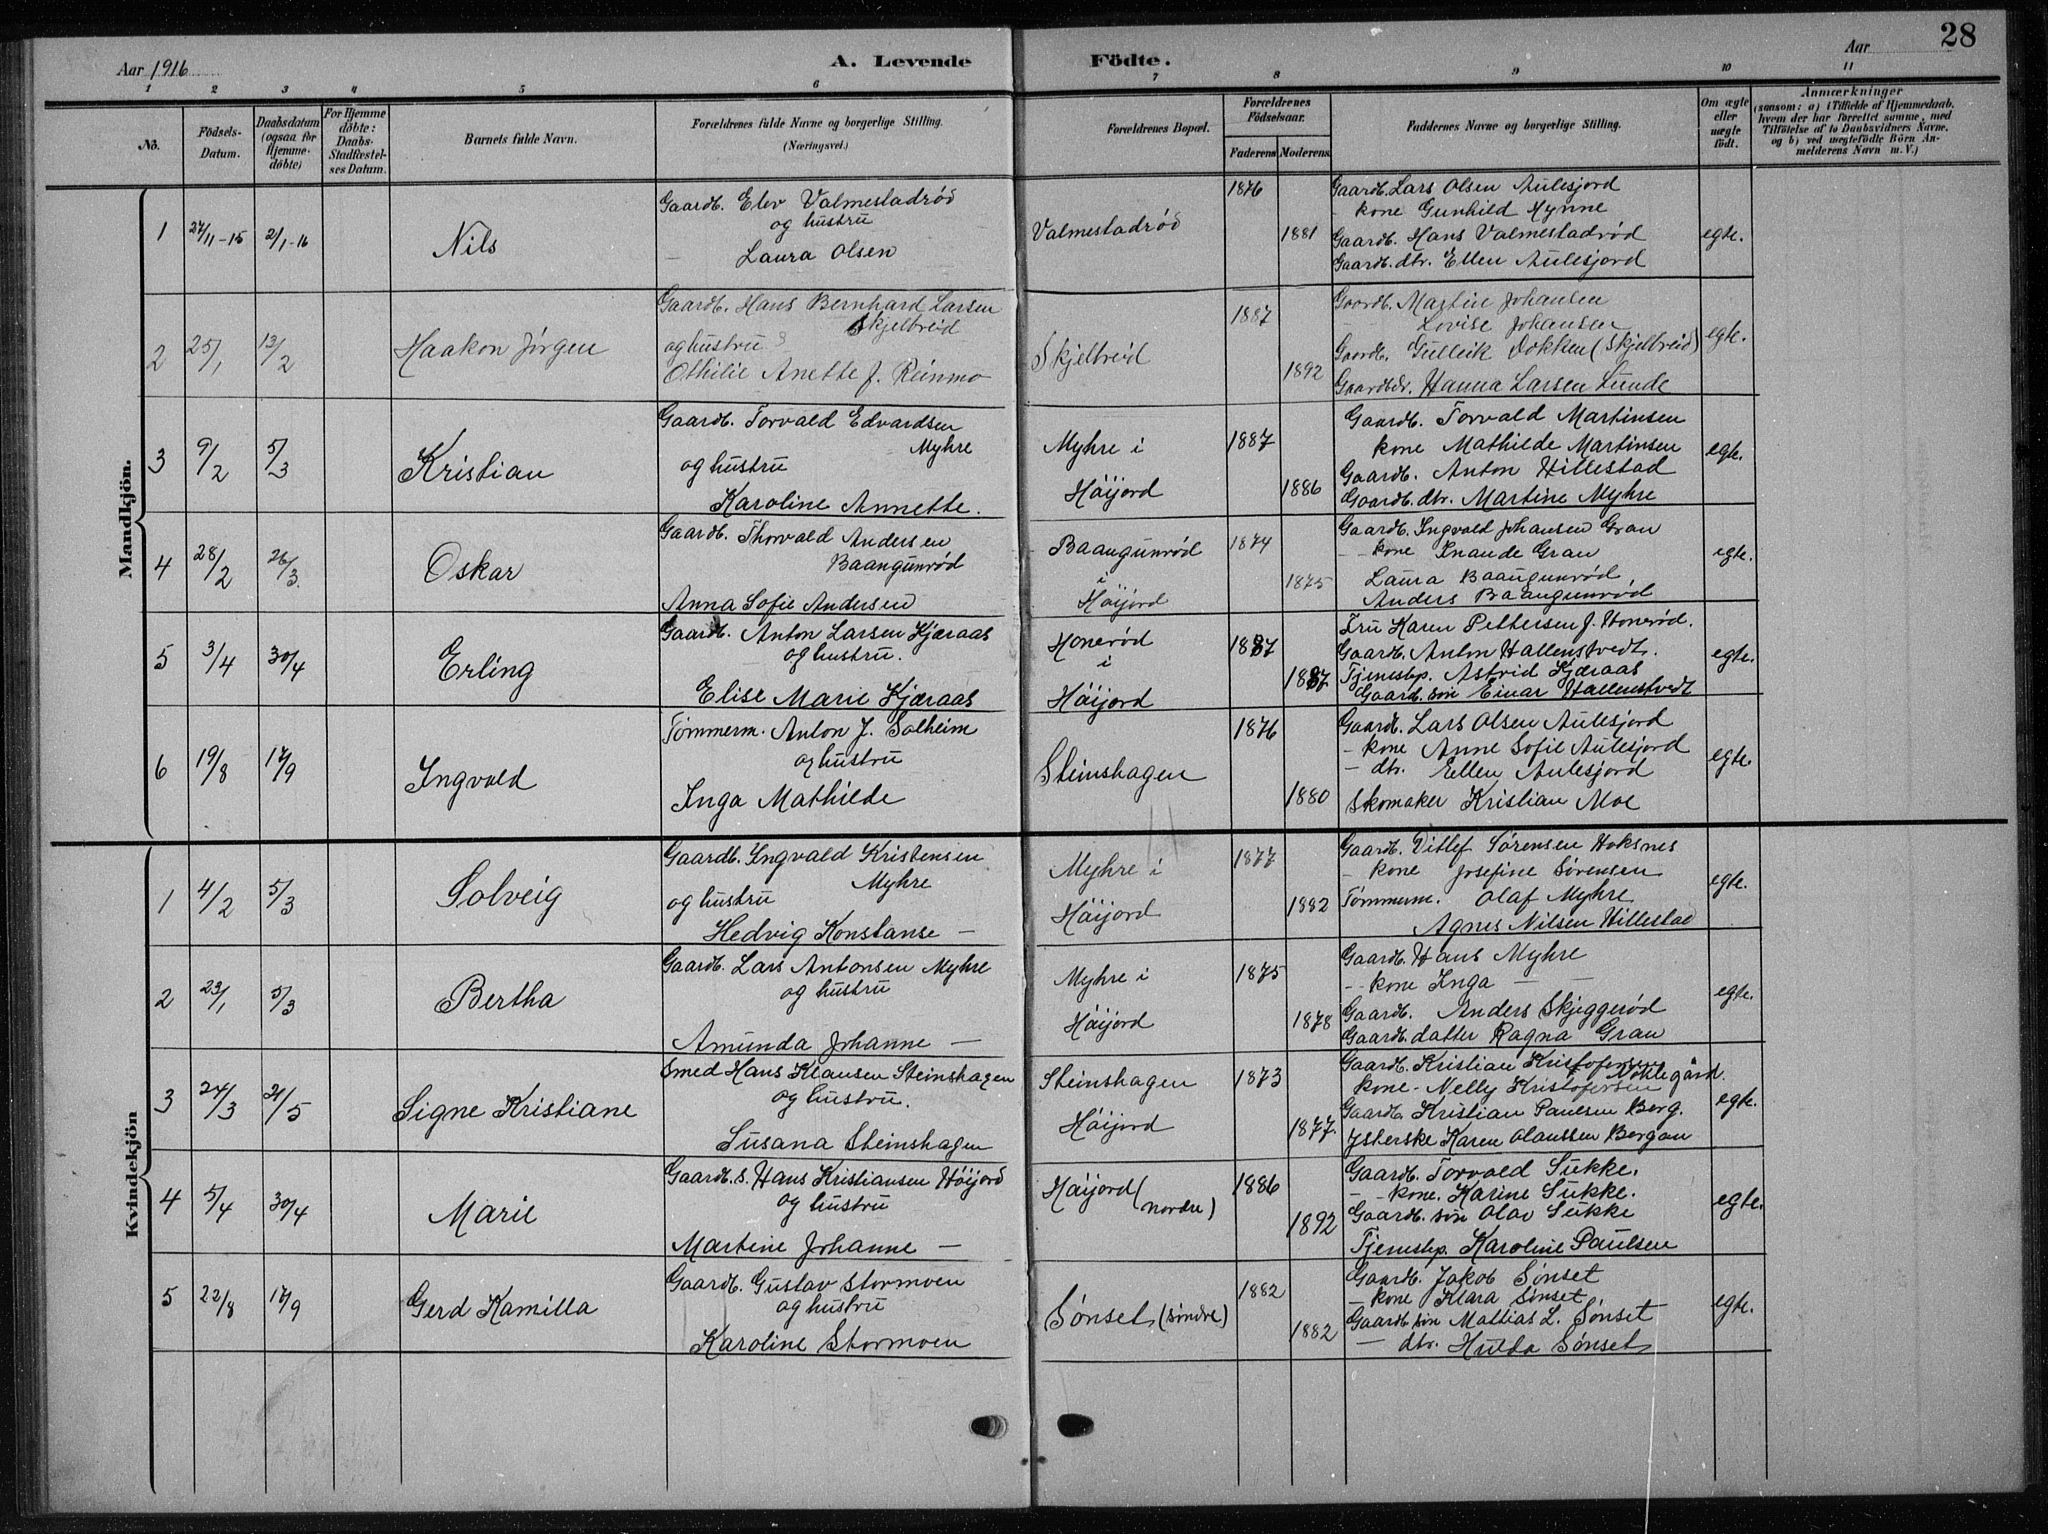 28
Aar 1916
A. Levende Födte.
Aar
1 2 3 4 5 6 7 8 9 10 11
No.
Födsels-Datum.
Daabsdatum (ogsaa for Hjemme-döbte)
For Hjemme döbte: Daabs-Stadfæstelses Datum.
Barnets fulde Navn.
Forældrenes fulde Navne og borgerlige Stilling.
(Næringsvei.)
Forældrenes Bopæl.
Forældrenes Födselsaar.
Faderens Moderens
Faddernes Navne og borgerlige Stilling.
Om ægte eller uægte födt.
Anmærkninger
(saasom: a) i Tilfælde af Hjemmedaab, hvem der har forrettet samme, med Tilföielse af to Daabsvidners Navne, og b) ved uegtefödte Börn Anmelderens Navn m. V.)
Mandkjön.
1 27/11-15 2/1-16 Nils
Gaardb. Elev Valmestadrød
og hustru
— Laura Olsen
Valmestadrød
1876 1881
Gaardb. Lars Olsen Aulesjord
- kone Gunhild Mynne
Gaardb. Hans Valmestadrød
Gaardb. dtr. Ellen Aulesjord
egte.
2 25/1 13/2 Haakon Jörgen
Gaardb. Hans Bernhard Larsen
Skjelbreid
og hustru
Othilie Anette J. Reinmo
Skjelbreid
1887 1892
Gaardb. Martin Johansen
Lovise Johansen
Gaardb. Gullik Dokken (Skjelbreid)
Gaardbdr. Hanna Larsen Lunde
egte.
3 9/2 5/3 Kristian
Gaardb. Torvald Edvardsen
Myhre
og hustru
Karoline Annette.
Myhre i
Höijord
1887 1886
Gaardb. Torvald Martinsen
kone Mathilde Martinsen
Gaardb. Anton Hillestad
Gaardb. dtr. Martine Myhre
egte.
4 28/2 26/3. Oskar
Gaardb. Thorvald Andersen
Baangunrød
Anna Sofie Andersen
Baangunrød
i
Höijord
1874 1875
Gaardb. Ingvald Johansen Gran
- - kone Inande Gran
Laura Baangunrød
Anders Baangunrød
egte.
5 3/4 30/4 Erling
Gaardb. Anton Larsen Kjæraas
og hustru.
Elise Marie Kjæraas
Honerød
i
Höijord
1887 1887
Fru Karen Pettersen J. Honerød.
Gaardb. Anton Hallenstvedt.
Tjenestp. Astrid Kjæraas
Gaardb. søn Einar Hallenstvedt
egte.
6 19/8 17/9 Ingvald
Tømmerm. Anton J. Solheim
og hustru
Inga Mathilde
Steinshagen
1876 1880
Gaardb. Lars Olsen Aulesjord
- kone Anne Sofie Aulesjord
— dtr. Ellen Aulesjord
Skomaker Kristian Moe
egte.
Kvindekjön
1 4/2 5/3 Solveig
Gaardb. Ingvald Kristensen
Myhre
og hustru
Hedvig Konstanse —
Myhre i
Höijord
1877 1882
Gaardb. Ditlef Sørensen Hoksnes
- kone Josefine Sørensen
Tømmerm. Olaf Myhre
Agnes Nilsen Hillestad
egte.
2 23/1 5/3 Bertha
Gaardb. Lars Antonsen Myhre
og hustru
Amunda Johanne —
Myhre i
Höijord
1875 1878
Gaardb. Hans Myhre
- - kone Inga —
Gaardb. Anders Skjeggerød
Gaardb. datter Ragna Gran
egte.
3 24/3 21/5 Signe Kristiane
Smed Hans Klausen Steinshagen
og hustru.
Susana Steinshagen
Steinshagen
Höijord
1873 1877.
Gaardb. Kristian Kristofersen
kone - Nelly Kristofersen
Gaardb. Kristian Paulsen Berg.
Ysterske Karen Olaussen Bergan
egte.
4 5/4 30/4 Marie
Gaardb. s. Hans Kristiansen Höijord
og hustru
Martine Johanne —
Höijord (nordre)
1886 1892
Gaardb. Torvald Sukke.
- - kone. Karine Sukke.
Gaardb. søn Olav Sukke
Tjenestp. Karoline Paulsen
egte.
5 22/8 17/9 Gerd Kamilla
Gaardb. Gustav Stormoen
og hustru
Karoline Stormoen
Sønset (söndre)
1882 1882
Gaardb. Jakob Sønset
- kone Klara Sønset.
Gaardb. søn Mathias L. Sønset
— dtr. Hulda Sønset
egte.